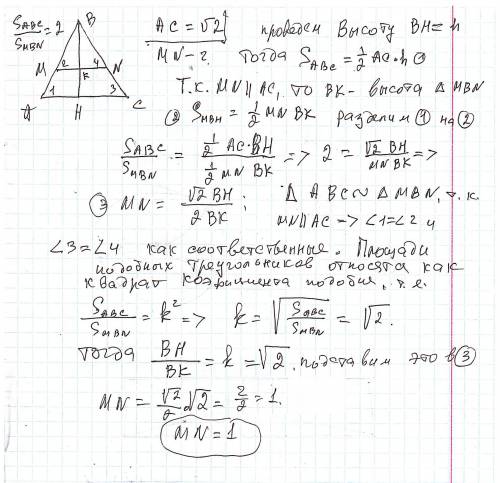 S_ABC / S_MBN = 2
B
AC = √2
MN - ?
проведем Высоту BH = h
тогда S_ABC = 1/2 AC · h ①
M 2 4 N
K
A 1 3 C
H
Т.к. MN || AC, то BK - высота Δ MBN
② S_MBH = 1/2 MN BK разделим ① на ②
S_ABC / S_MBN = (1/2 AC · BH) / (1/2 MN BK) => 2 = √2 BH / MN BK =>
③ MN = √2 BH / 2 BK ; Δ ABC ~ Δ MBN, т.к.
MN || AC -> ∠1 = ∠2 и
∠3 = ∠4 как соответственные. Площади
подобных треугольников относятся как
квадрат коэфициента подобия, т.е.
S_ABC / S_MBN = k² => k = √(S_ABC / S_MBN) = √2.
Тогда BH / BK = k = √2, подставим это в ③
MN = √2/2 · √2 = 2/2 = 1.
MN = 1